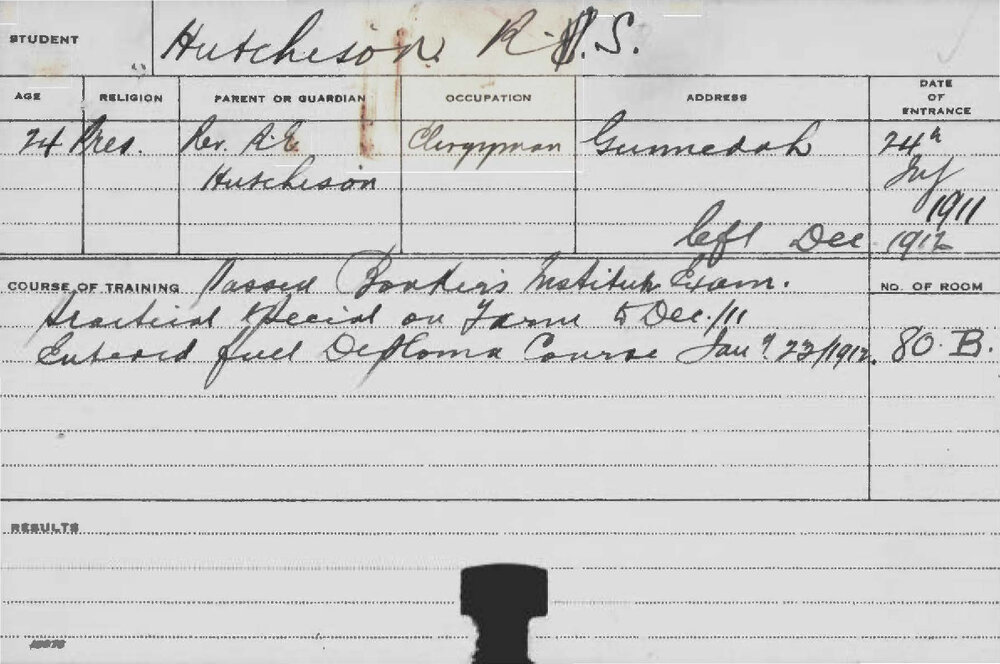 STUDENT Hutcheson R. S.
AGE RELIGION PARENT OR GUARDIAN OCCUPATION ADDRESS DATE OF ENTRANCE
24 Pres. Rev. R. E. Clergyman Gunnedah 24th
Hutcheson July
1911
left Dec. 1912
COURSE OF TRAINING Passed Bankers Institute Exam. NO. OF ROOM
Practical Special on Farm to Dec./11
Entered full Diploma Course Jany 23/1912. 80. B.
RESULTS